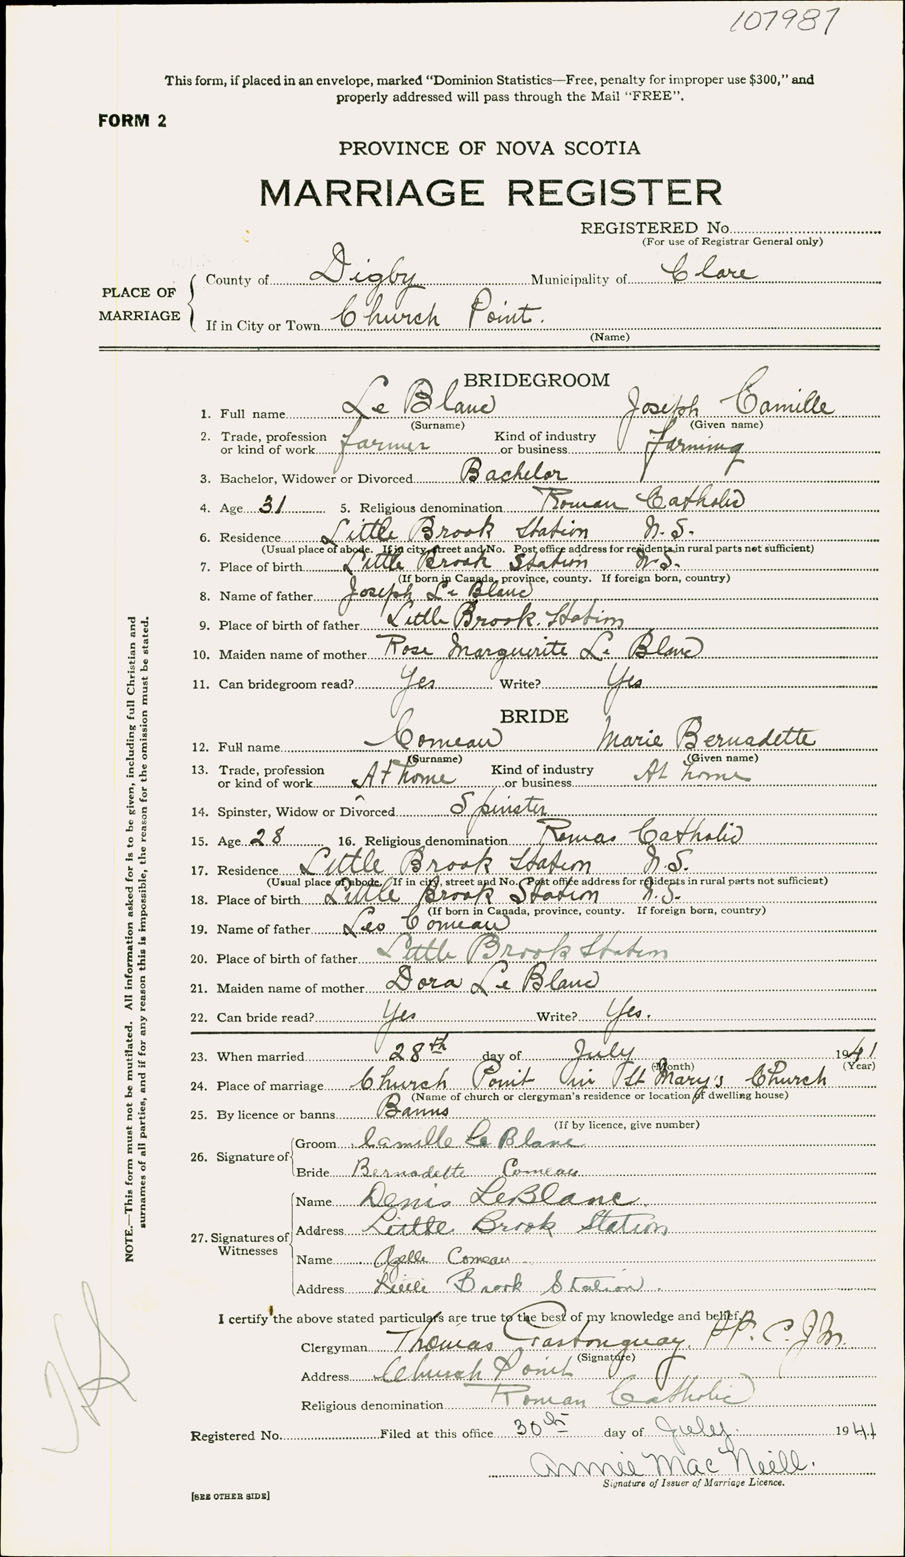 107987
This form, if placed in an envelope, marked "Dominion Statistics—Free, penalty for improper use $300," and
properly addressed will pass through the Mail "FREE".
FORM 2
PROVINCE OF NOVA SCOTIA
MARRIAGE REGISTER
REGISTERED No.
(For use of Registrar General only)
PLACE OF MARRIAGE
County of Digby Municipality of Clare
If in City or Town Church Point.
(Name)
BRIDEGROOM
1. Full name Le Blanc Joseph Camille
(Surname) (Given name)
2. Trade, profession or kind of work farmer Kind of industry or business farming
3. Bachelor, Widower or Divorced Bachelor
4. Age 31 5. Religious denomination Roman Catholic
6. Residence Little Brook Station N.S.
(Usual place of abode. If in city, street and No. Post office address for residents in rural parts not sufficient)
7. Place of birth Little Brook Station N.S.
(If born in Canada, province, county. If foreign born, country)
8. Name of father Joseph Le Blanc
9. Place of birth of father Little Brook Station
10. Maiden name of mother Rose Marguerite Le Blanc
11. Can bridegroom read? Yes Write? Yes
BRIDE
12. Full name Comeau Marie Bernadette
(Surname) (Given name)
13. Trade, profession or kind of work At home Kind of industry or business At home
14. Spinster, Widow or Divorced Spinster
15. Age 28 16. Religious denomination Roman Catholic
17. Residence Little Brook Station N.S.
(Usual place of abode. If in city, street and No. Post office address for residents in rural parts not sufficient)
18. Place of birth Little Brook Station N.S.
(If born in Canada, province, county. If foreign born, country)
19. Name of father Leo Comeau
20. Place of birth of father Little Brook Station
21. Maiden name of mother Dora Le Blanc
22. Can bride read? Yes Write? Yes.
23. When married 28th day of July 1941
(Month) (Year)
24. Place of marriage Church Point in St Mary's Church
(Name of church or clergyman's residence or location of dwelling house)
25. By licence or banns Banns
(If by licence, give number)
26. Signature of Groom Camille Le Blanc
Bride Bernadette Comeau
27. Signatures of Witnesses
Name Denis LeBlanc
Address Little Brook Station
Name Comeau
Address Little Brook Station.
I certify the above stated particulars are true to the best of my knowledge and belief.
Clergyman Thomas Castonguay, P.P. C.J.M.
(Signature)
Address Church Point
Religious denomination Roman Catholic
Registered No. Filed at this office 30th day of July 1941
Annie MacNeill.
Signature of Issuer of Marriage Licence.
[SEE OTHER SIDE]
NOTE.—This form must not be mutilated. All information asked for is to be given, including full Christian and
surnames of all parties, and if for any reason this is impossible, the reason for the omission must be stated.